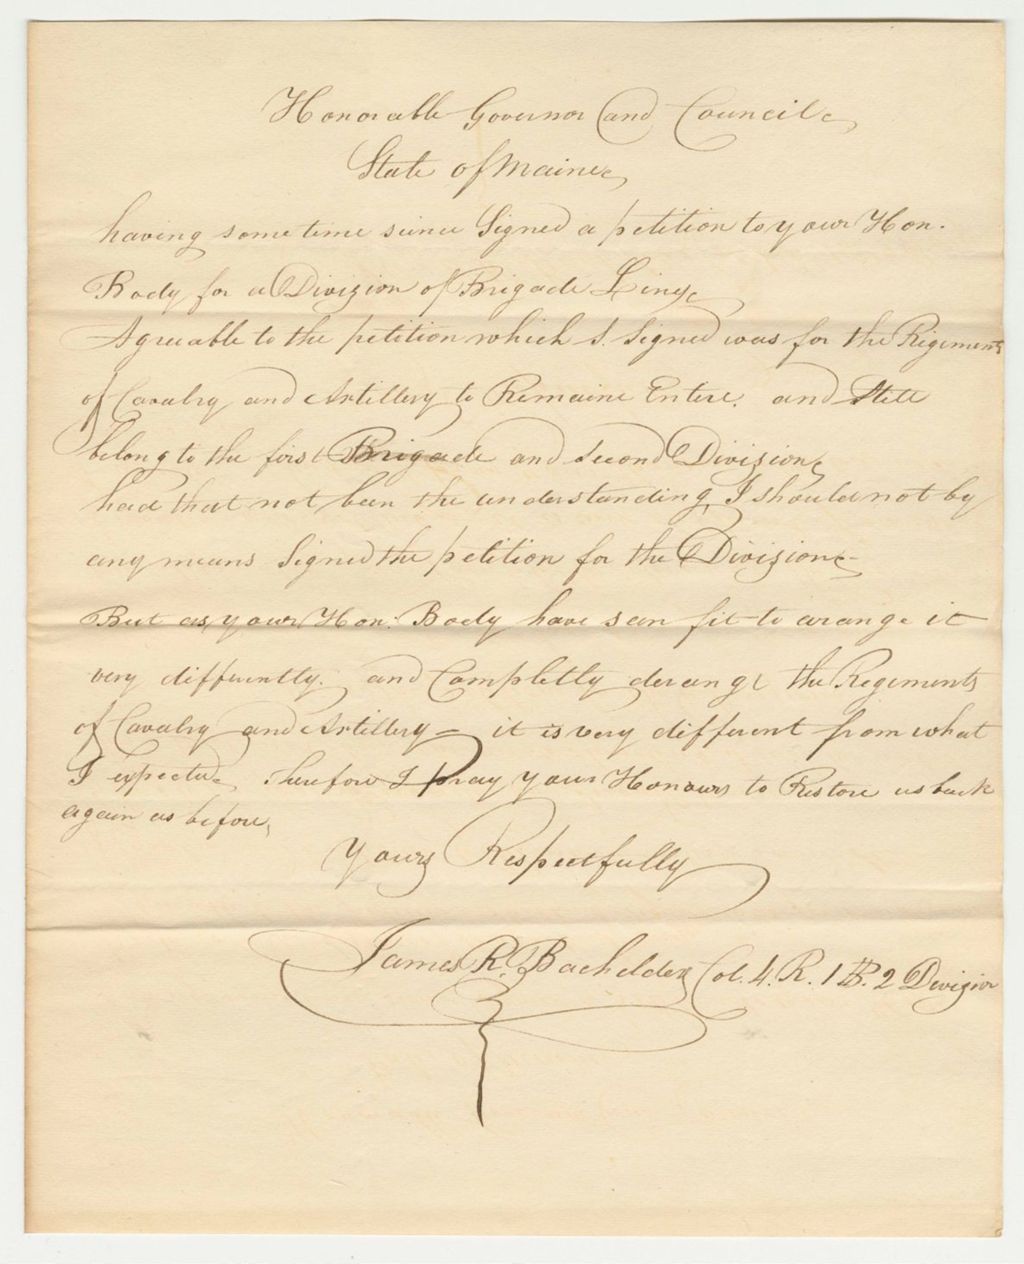 Honorable Governor and Council
State of Maine
having some time since Signed a petition to your Hon.
Body for a Division of Brigade Line
Agreeable to the petition which I. Signed was for the Rigiments
of Cavalry and Artillery to Remaine Entire. and Still
belong to the first Brigade and second Division
had that not been the understanding, I should not by
any means Signed the petition for the Division
But as your Hon. Body have seen fit to arange it
very differently. and Completly derange the Regiments
of Cavalry and Artillery - it is very different from what
I expected Therefore I pray your Honours to Restore us back
again as before,
Yours Respectfully
James R. Bachelder Col. 4. R. 1 B. 2 Division